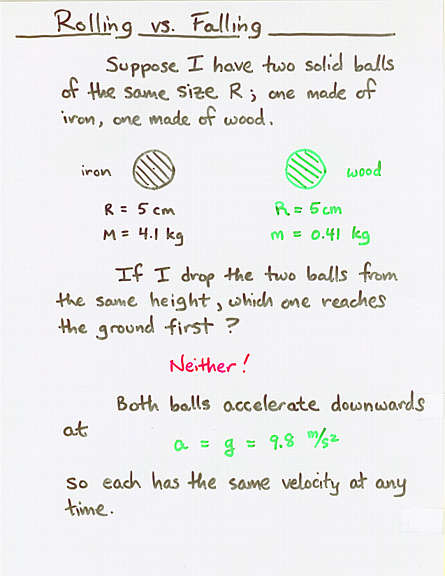 Rolling vs. Falling
Suppose I have two solid balls
of the same size R; one made of
iron, one made of wood.
iron
wood
R = 5 cm
R = 5 cm
M = 4.1 kg
m = 0.41 kg
If I drop the two balls from
the same height, which one reaches
the ground first?
Neither!
Both balls accelerate downwards
at
a = g = 9.8 m/s²
so each has the same velocity at any
time.